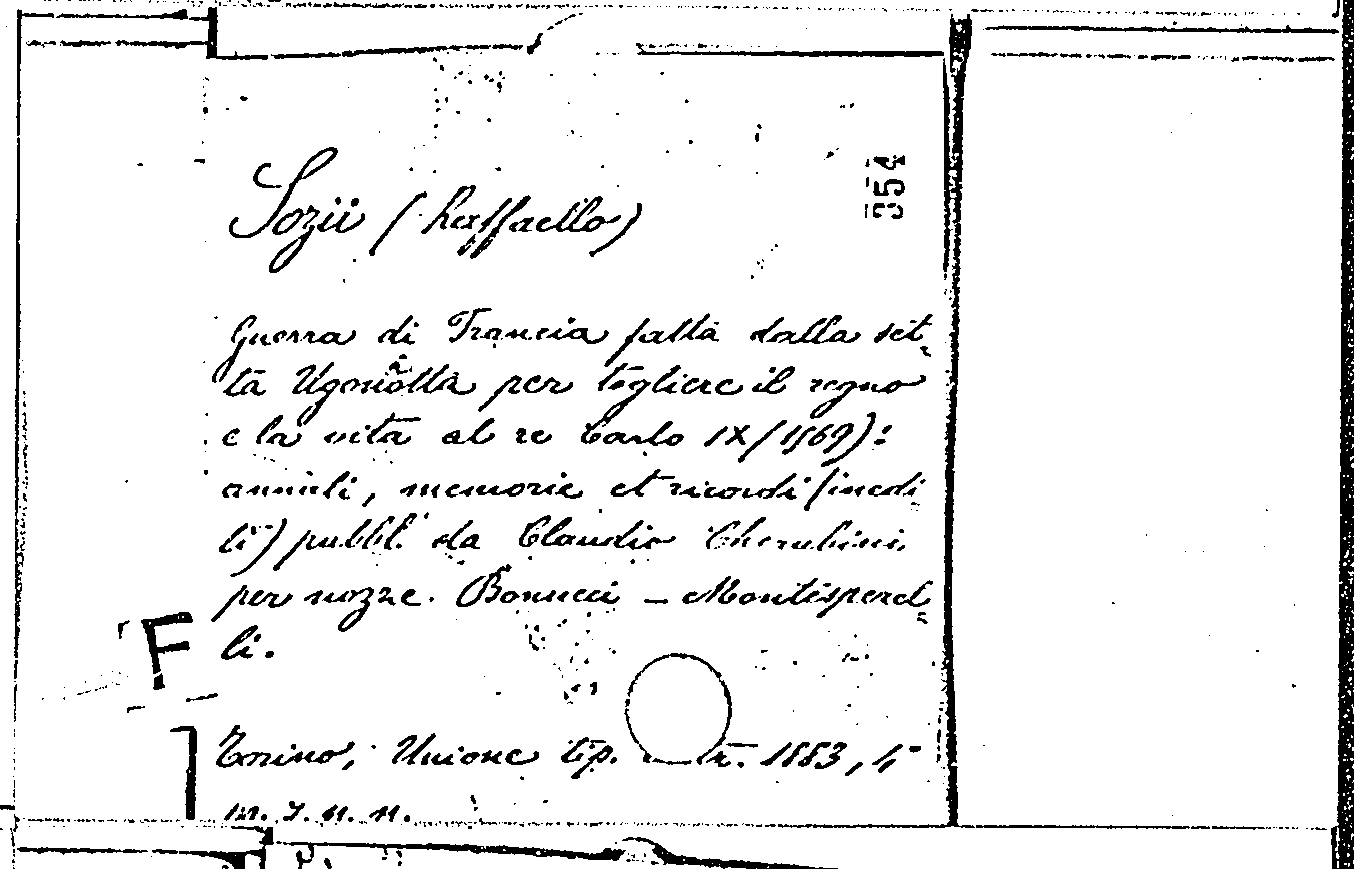 354
Sozii (Raffaello)
Guerra di Francia fatta dalla set-
ta Ugonotta per togliere il regno
e la vita al re Carlo IX (1569):
annali, memorie et ricordi (inedi-
ti) pubbl. da Claudio Cherubini
per nozze. Bonucci - Montesperel-
li.
F
Torino, Unione tip. 1883, 4°
m. n. n.